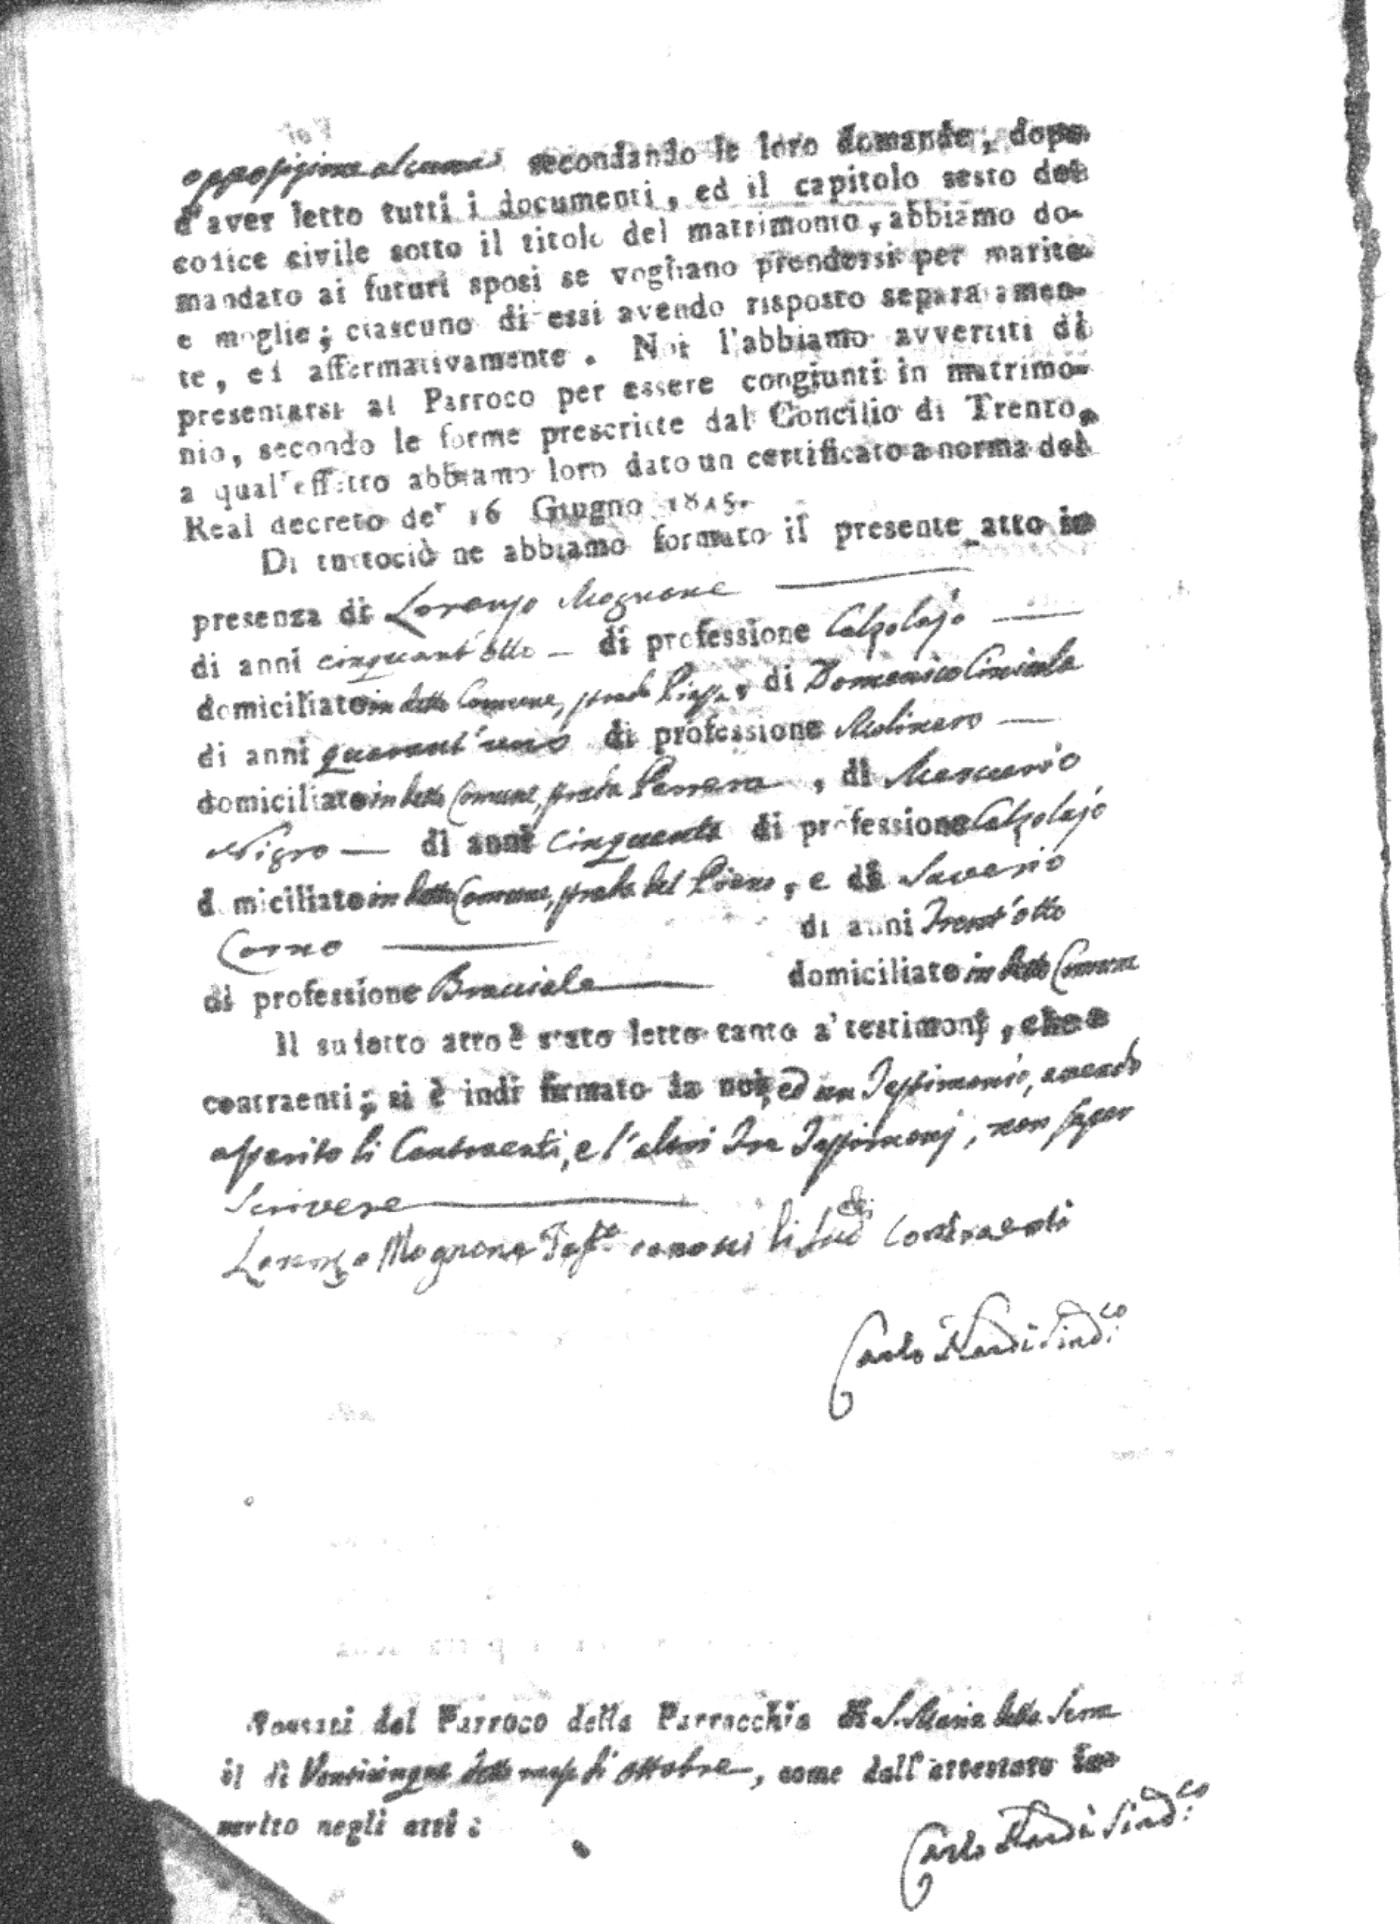 opposizione alcuna secondando le loro domande, dopo
d'aver letto tutti i documenti, ed il capitolo sesto del
codice civile sotto il titolo del matrimonio, abbiamo do-
mandato ai futuri sposi se vogliano prendersi per marito
e moglie; ciascuno di essi avendo risposto separatamen-
te, ed affermativamente. Noi l'abbiamo avvertiti di
presentarsi al Parroco per essere congiunti in matrimo-
nio, secondo le forme prescritte dal Concilio di Trento,
a qual'effetto abbiamo loro dato un certificato a norma del
Real decreto de' 16 Giugno 1815.
Di tuttociò ne abbiamo formato il presente atto in
presenza di Lorenzo Mognone
di anni cinquant'otto di professione Calzolajo
domiciliato in detto Comune, strada Piazza, di Domenico
di anni quarant'uno di professione Molinaro
domiciliato in detto Comune, strada, di Mercurio
Nigro di anni cinquanta di professione Calzolajo
domiciliato in detto Comune, strada del, e di Saverio
Corno di anni Trent'otto
di professione Bracciale domiciliato in detto Comune
Il sudetto atto è stato letto tanto a' testimonj, che a
contraenti; si è indi firmato da noi, ed un Testimonio, avendo
asserito li Contraenti, e l'altri Tre Testimonj, non saper
Scrivere
Lorenzo Mognone Test.e conosci li Sud.i Contraenti
Carlo Nardi Sind.co
del Parroco della Parrocchia di S. Maria della Serra
il dì Venticinque detto mese di ottobre, come dall'attestato in-
serito negli atti:
Carlo Nardi Sind.co